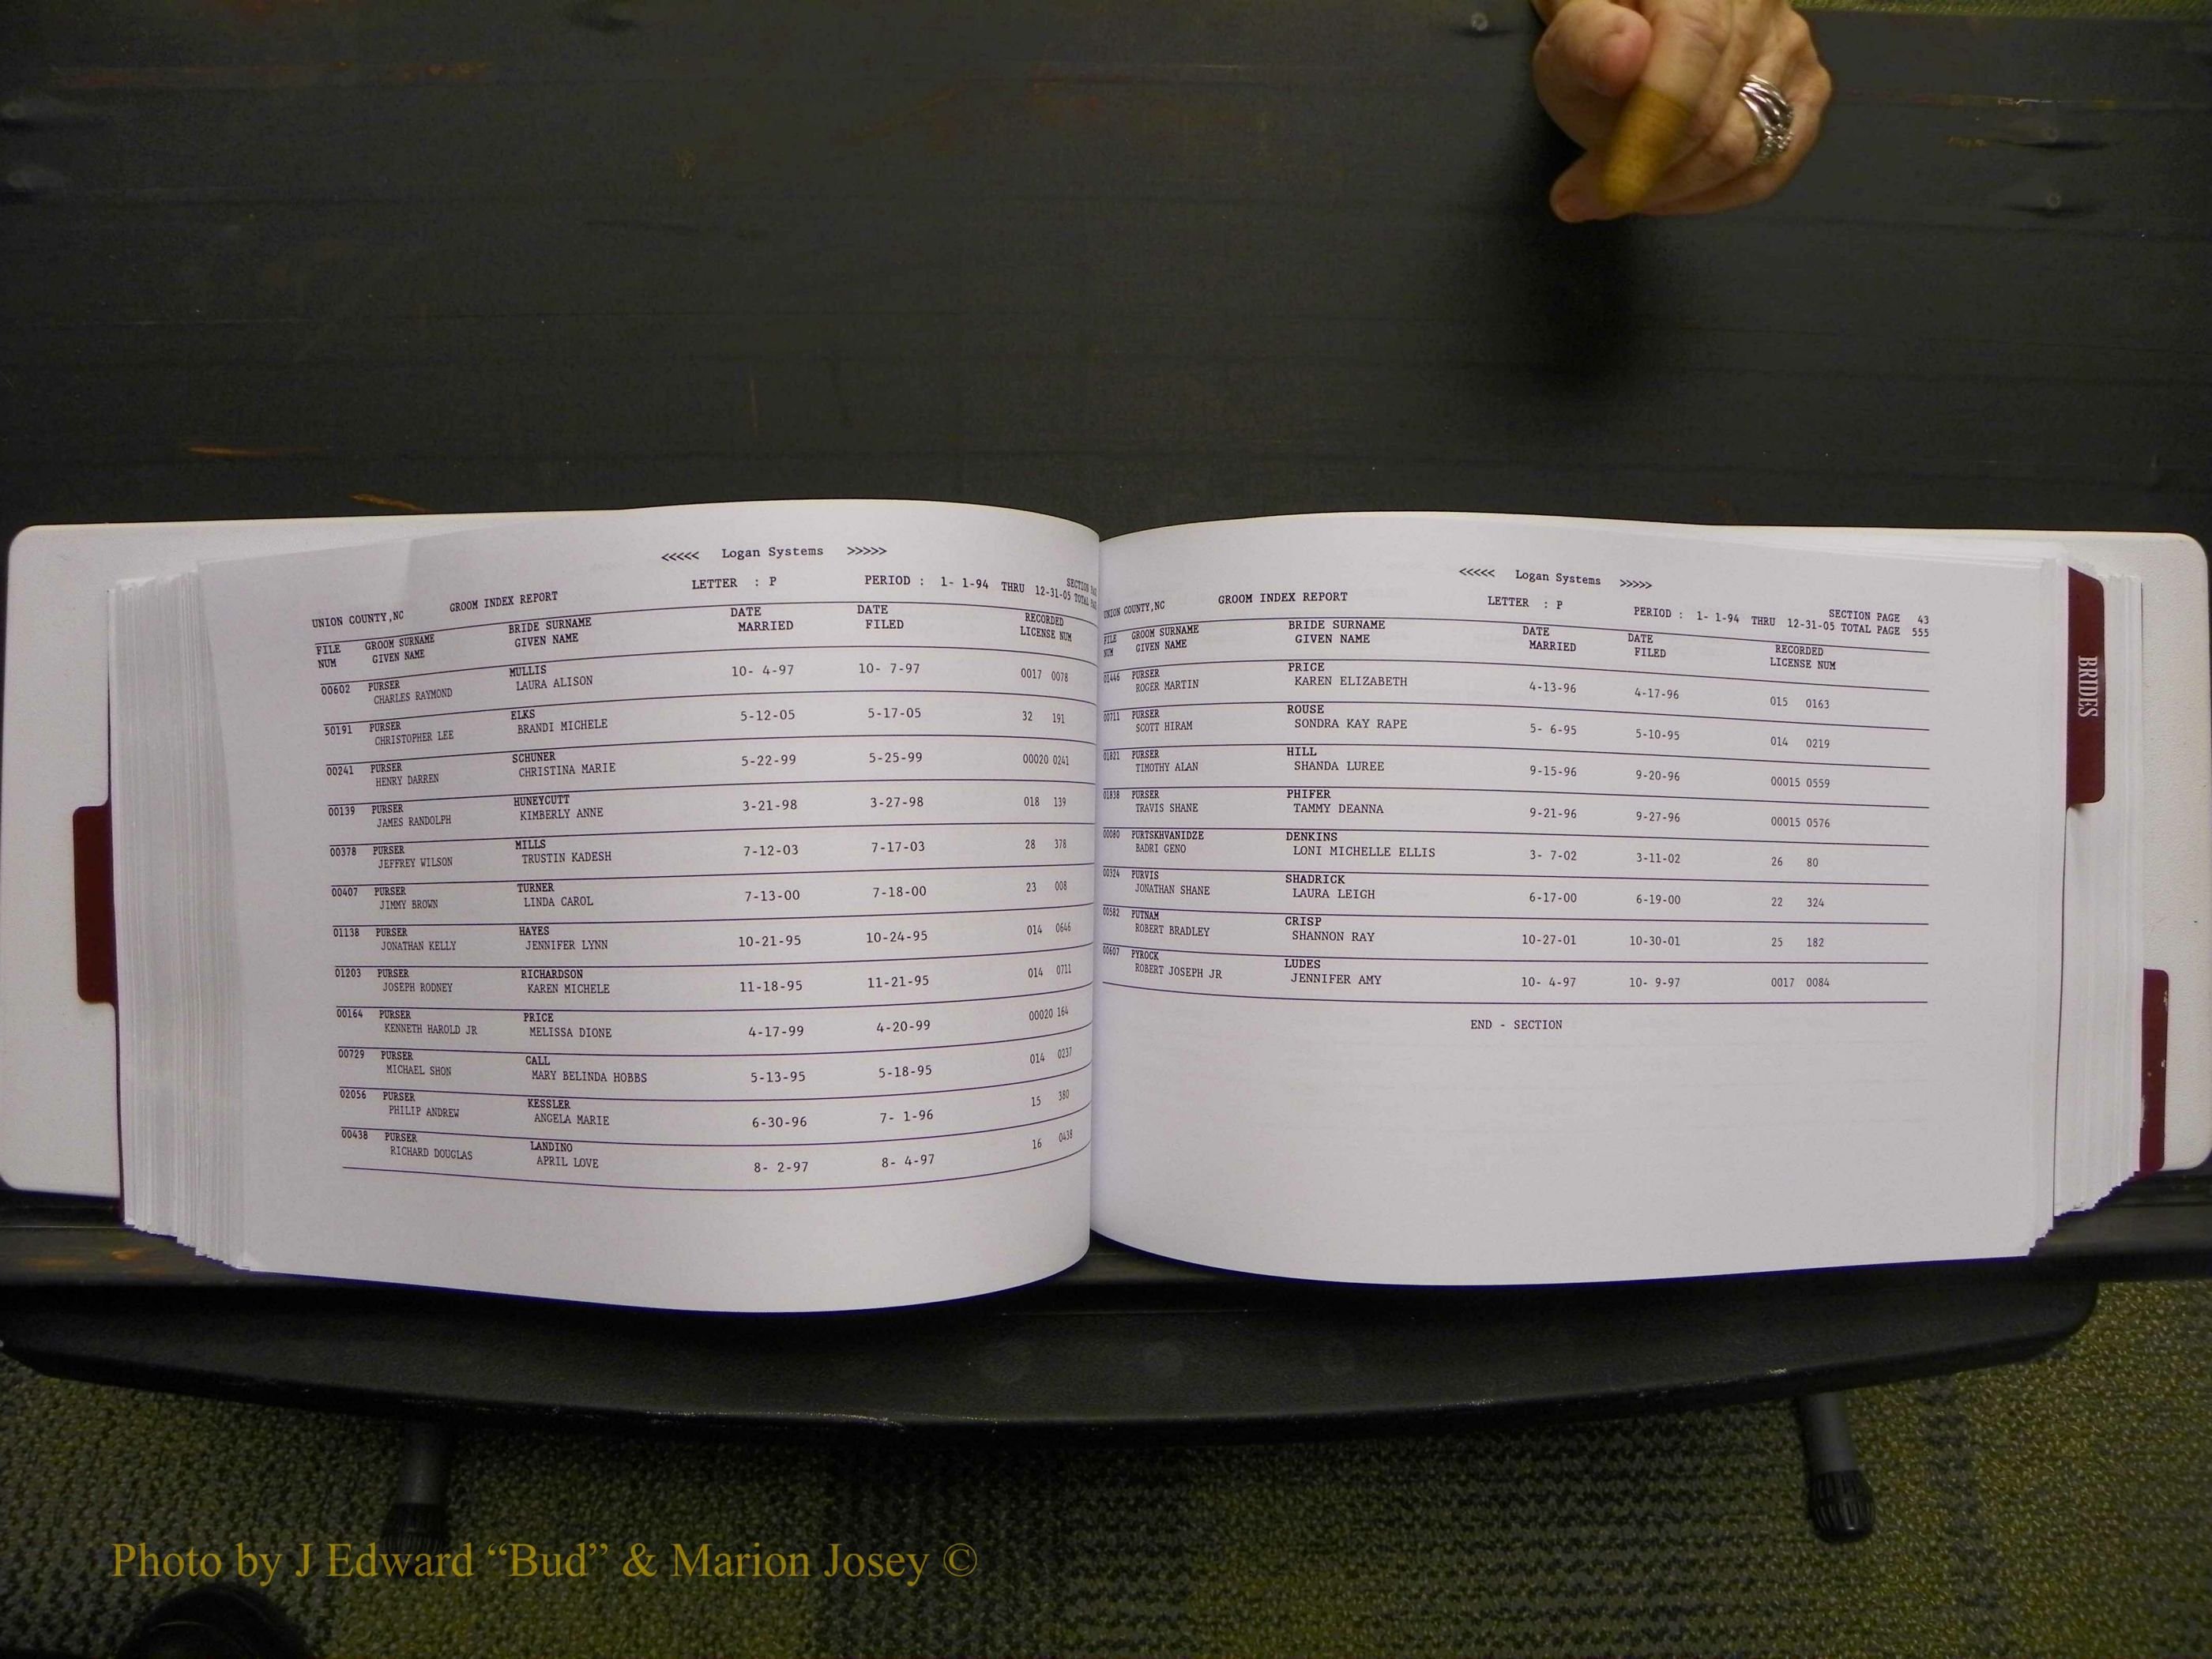 <<<<< Logan Systems >>>>>
UNION COUNTY,NC GROOM INDEX REPORT LETTER : P PERIOD : 1- 1-94 THRU 12-31-05
SECTION
TOTAL
FILE GROOM SURNAME BRIDE SURNAME DATE DATE RECORDED
NUM GIVEN NAME GIVEN NAME MARRIED FILED LICENSE NUM
00602 PURSER MULLIS 10- 4-97 10- 7-97 0017 0078
CHARLES RAYMOND LAURA ALISON
50191 PURSER ELKS 5-12-05 5-17-05 32 191
CHRISTOPHER LEE BRANDI MICHELE
00241 PURSER SCHUNER 5-22-99 5-25-99 00020 0241
HENRY DARREN CHRISTINA MARIE
00139 PURSER HUNEYCUTT 3-21-98 3-27-98 018 139
JAMES RANDOLPH KIMBERLY ANNE
00378 PURSER MILLS 7-12-03 7-17-03 28 378
JEFFREY WILSON TRUSTIN KADESH
00407 PURSER TURNER 7-13-00 7-18-00 23 008
JIMMY BROWN LINDA CAROL
01138 PURSER HAYES 10-21-95 10-24-95 014 0646
JONATHAN KELLY JENNIFER LYNN
01203 PURSER RICHARDSON 11-18-95 11-21-95 014 0711
JOSEPH RODNEY KAREN MICHELE
00164 PURSER PRICE 4-17-99 4-20-99 00020 164
KENNETH HAROLD JR MELISSA DIONE
00729 PURSER CALL 5-13-95 5-18-95 014 0237
MICHAEL SHON MARY BELINDA HOBBS
02056 PURSER KESSLER 6-30-96 7- 1-96 15 380
PHILIP ANDREW ANGELA MARIE
00438 PURSER LANDINO 8- 2-97 8- 4-97 16 0438
RICHARD DOUGLAS APRIL LOVE
<<<<< Logan Systems >>>>>
UNION COUNTY,NC GROOM INDEX REPORT LETTER : P PERIOD : 1- 1-94 THRU 12-31-05
SECTION PAGE 43
TOTAL PAGE 555
FILE GROOM SURNAME BRIDE SURNAME DATE DATE RECORDED
NUM GIVEN NAME GIVEN NAME MARRIED FILED LICENSE NUM
01446 PURSER PRICE 4-13-96 4-17-96 015 0163
ROGER MARTIN KAREN ELIZABETH
00711 PURSER ROUSE 5- 6-95 5-10-95 014 0219
SCOTT HIRAM SONDRA KAY RAPE
01821 PURSER HILL 9-15-96 9-20-96 00015 0559
TIMOTHY ALAN SHANDA LUREE
01838 PURSER PHIFER 9-21-96 9-27-96 00015 0576
TRAVIS SHANE TAMMY DEANNA
00080 PURTSKHVANIDZE DENKINS 3- 7-02 3-11-02 26 80
BADRI GENO LONI MICHELLE ELLIS
00324 PURVIS SHADRICK 6-17-00 6-19-00 22 324
JONATHAN SHANE LAURA LEIGH
00582 PUTNAM CRISP 10-27-01 10-30-01 25 182
ROBERT BRADLEY SHANNON RAY
00607 PYROCK LUDES 10- 4-97 10- 9-97 0017 0084
ROBERT JOSEPH JR JENNIFER AMY
END - SECTION
BRIDES
Photo by J Edward “Bud” & Marion Josey ©